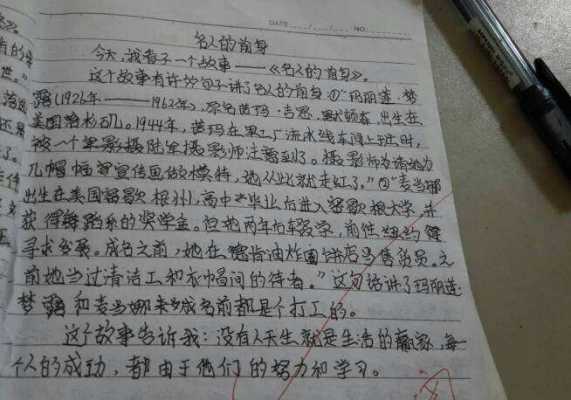 DATE NO.
名人的前身
今天,我看了一个故事——《名人的前身》。
这个故事有许多句子讲了名人的前身①"玛丽莲·梦
露(1926年——1962年),原名 出生在
美国洛杉矶。1944年, 在某工厂流水线车间上班时,
被一个 摄陆军摄影师注意到了。摄影师为请她为
几帽 宣传画做模特,她从此就走红了。"②"麦当娜
出生在美国密歇根州,高中毕业后进入密歇根大学,并
获得舞蹈系的奖学金。但她两年后辍学,前往纽约
寻求发展。成名之前,她在 肯 油炸圈饼店当售货员。之
前她当过清洁工和衣帽间的侍者。"这句话讲了玛丽莲
梦露和麦当娜未成名前都是个打工的。
这个故事告诉我:没有人天生就是生活的赢家,每
个人的成功,都由于他们的努力和学习。